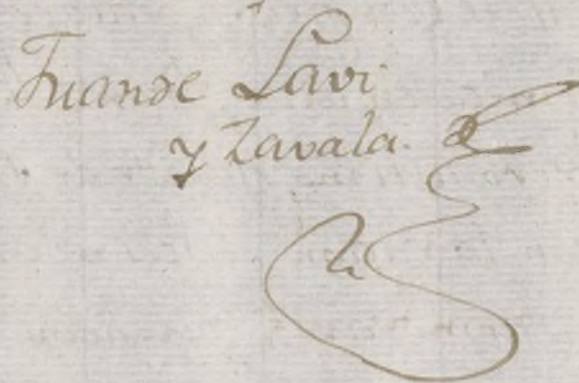 Juan de Lavi
y Zavala.